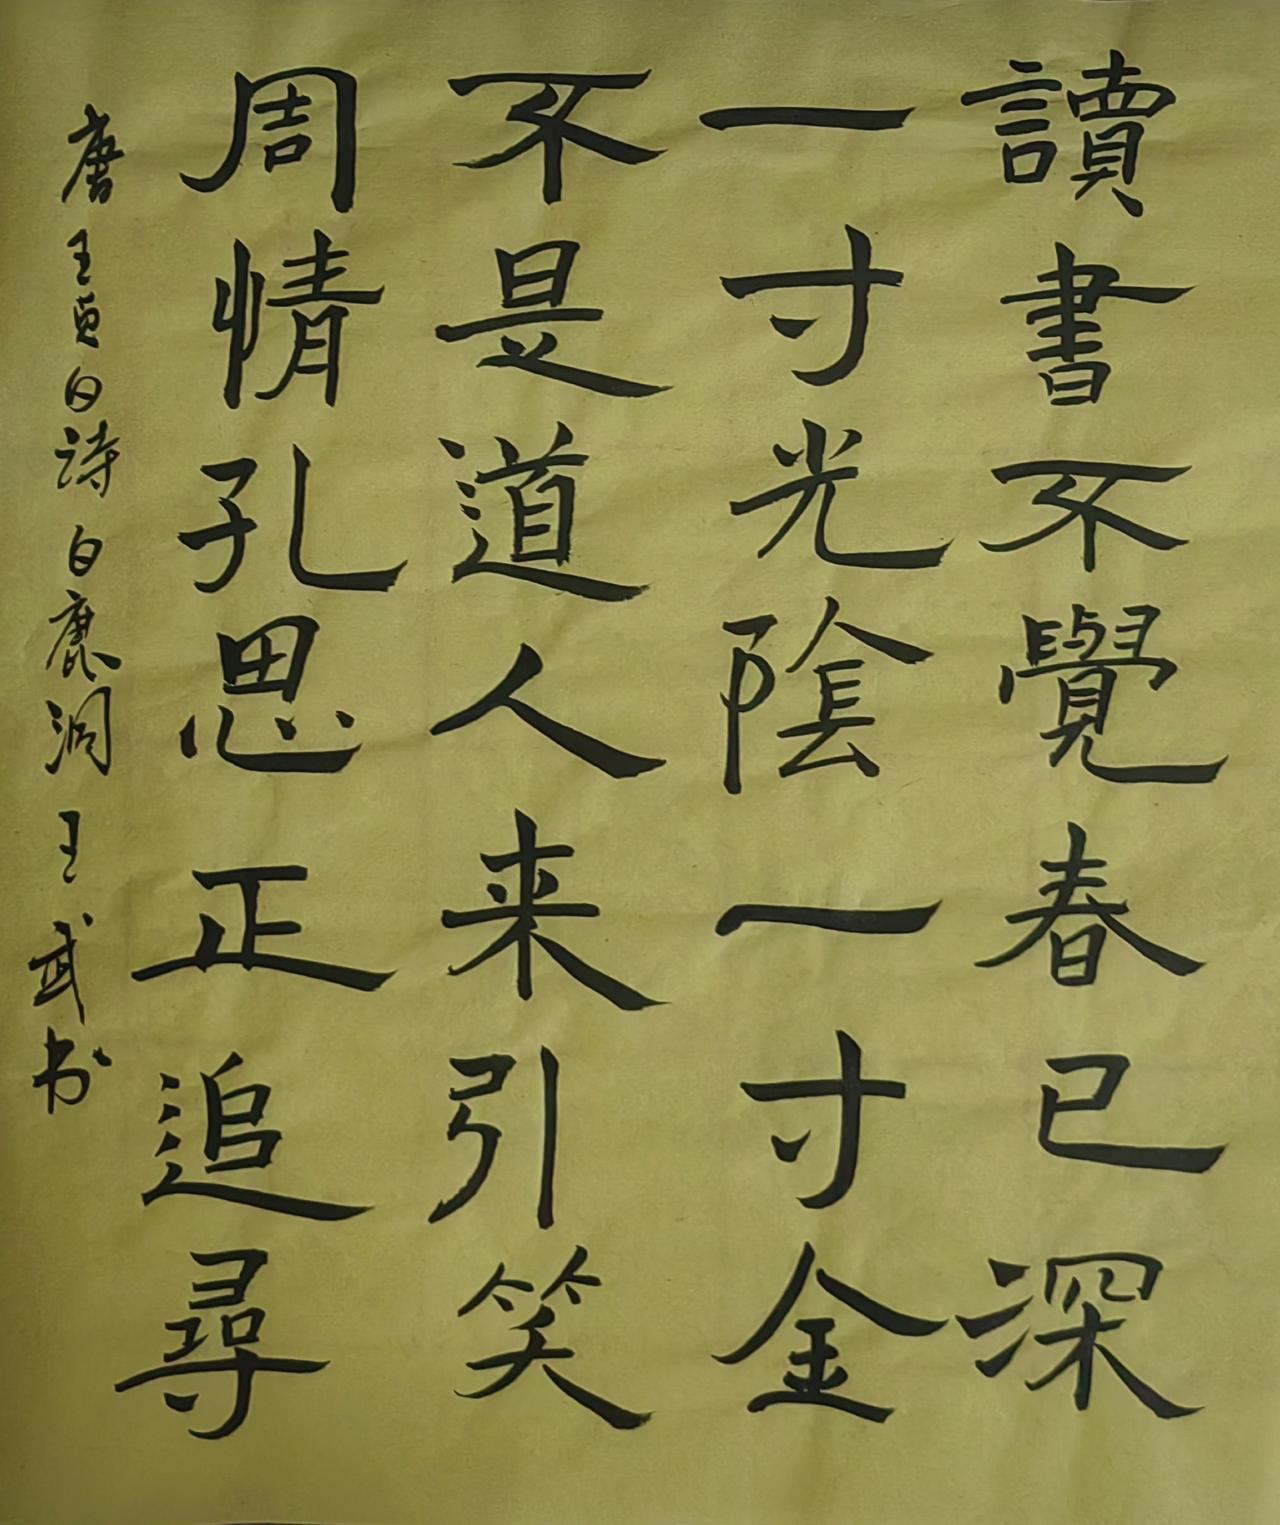 讀書不覺春已深
一寸光陰一寸金
不是道人来引笑
周情孔思正追尋
唐王貞白詩白鹿洞王武书